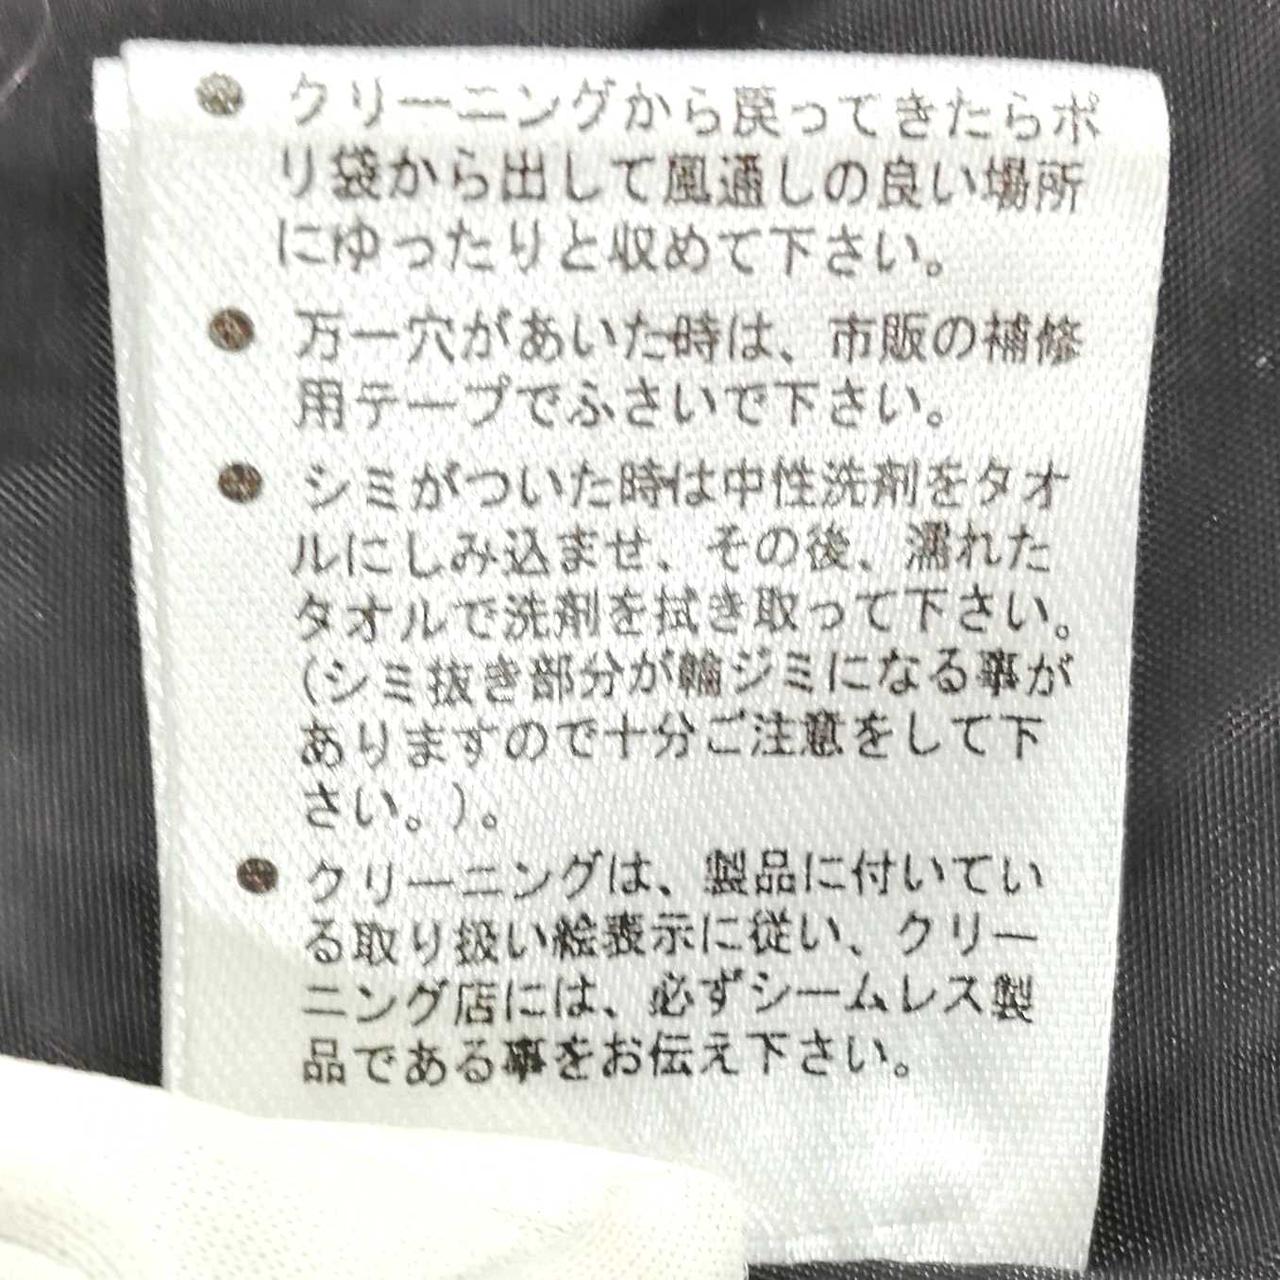 ● クリーニングから戻ってきたらポ
リ袋から出して風通しの良い場所
にゆったりと収めて下さい。
● 万一穴があいた時は、市販の補修
用テープでふさいで下さい。
● シミがついた時は中性洗剤をタオ
ルにしみ込ませ、その後、濡れた
タオルで洗剤を拭き取って下さい。
(シミ抜き部分が輪ジミになる事が
ありますので十分ご注意をして下
さい。)。
● クリーニングは、製品に付いてい
る取り扱い絵表示に従い、クリー
ニング店には、必ずシームレス製
品である事をお伝え下さい。